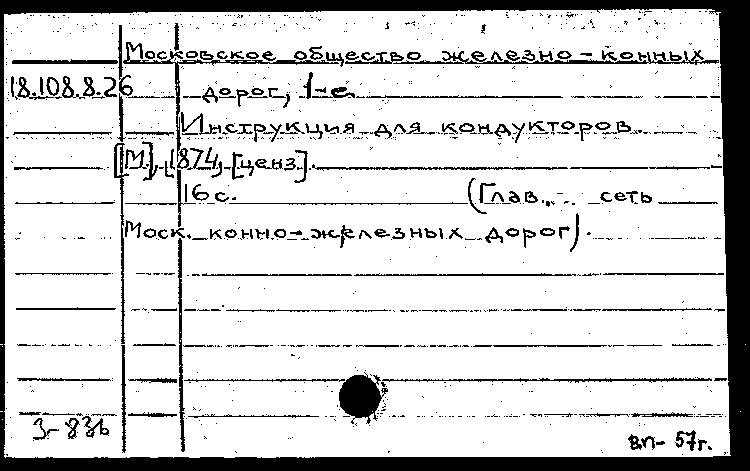 Московское общество железно-конных
18.108.8.26 дорог, 1-е.
Инструкция для кондукторов.
[М], 1874, [ценз].
16 с. (Глав. сеть
Моск. конно-железных дорог).
вп- 57г.